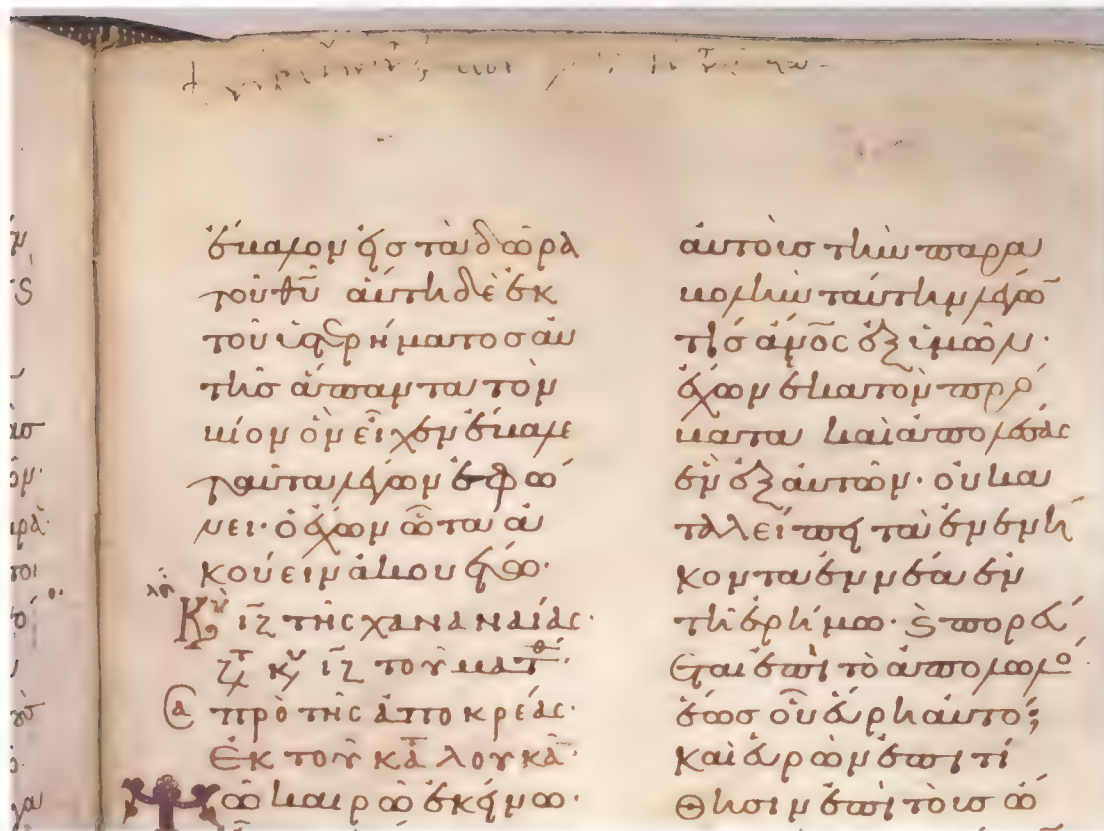 ἔβαλον εἰς τὰ δῶρα
τοῦ θῦ αὕτη δὲ ἐκ
τοῦ ὑστερήματος αὐ
τῆς ἅπαντα τὸν
βίον ὃν εἶχεν ἔβαλε
ταῦτα λέγων ἐφώ
νει· ὁ ἔχων ὦτα ἀ
κούειν ἀκουέτω·
Κυ ιζ τῆς χαναναίας·
ζτ κυ ιζ τοῦ ματθ·
πρὸ τῆς ἀποκρέας·
ἐκ τοῦ κατὰ λουκᾶ·
τῶ καιρῶ ἐκείνω·
αὐτοῖς τὴν παρα
βολὴν ταύτην λέγω
τίς ἄνος ἐξ ὑμῶν·
ἔχων ἑκατὸν πρό
βατα καὶ ἀπολέσας
ἓν ἐξ αὐτῶν· οὐ κα
ταλείπει τὰ ἐνενή
κοντα ἐννέα ἐν
τῆ ἐρήμω· ϛ πορεύ
εται ἐπὶ τὸ ἀπολωλὸ
ἕως οὗ εὕρη αὐτό;
καὶ εὑρὼν ἐπιτί
θησιν ἐπὶ τοὺς ὤ